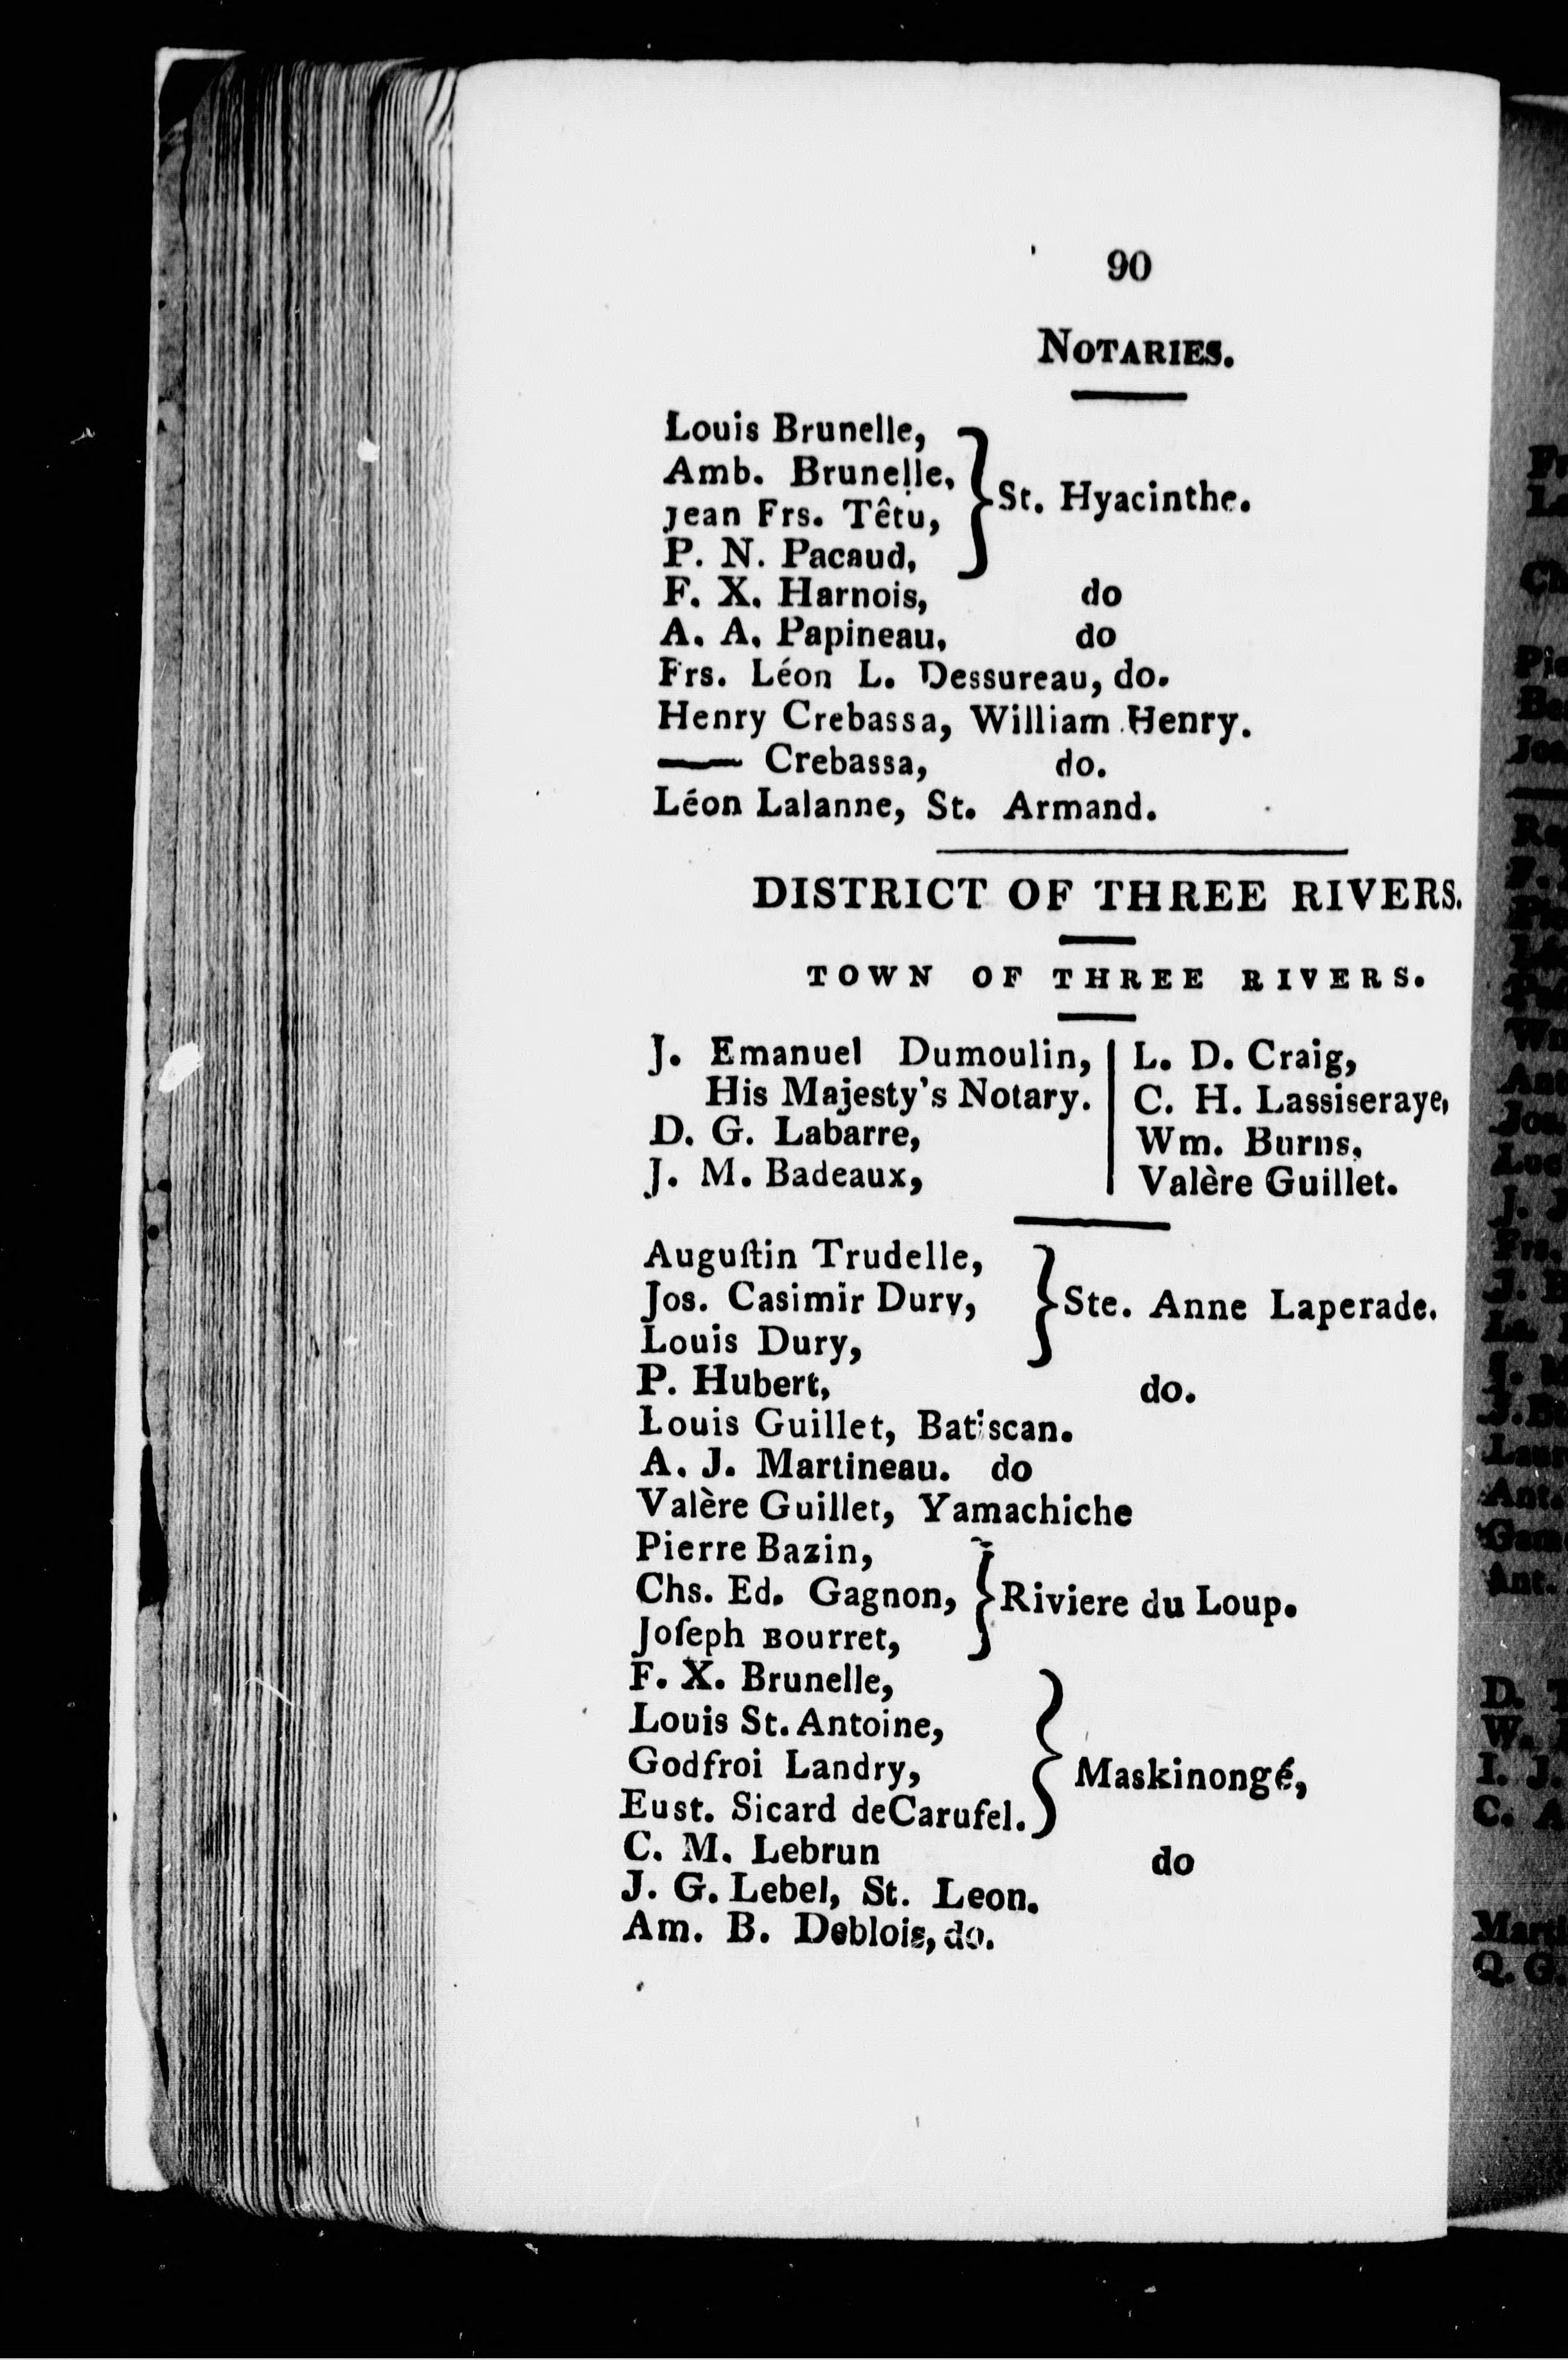 90
NOTARIES.
Louis Brunelle,
Amb. Brunelle,
Jean Frs. Têtu,
P. N. Pacaud,
} St. Hyacinthe.
F. X. Harnois, do
A. A. Papineau, do
Frs. Léon L. Dessureau, do.
Henry Crebassa, William Henry.
—— Crebassa, do.
Léon Lalanne, St. Armand.
DISTRICT OF THREE RIVERS.
TOWN OF THREE RIVERS.
J. Emanuel Dumoulin,
His Majesty's Notary.
D. G. Labarre,
J. M. Badeaux,
L. D. Craig,
C. H. Lassiseraye,
Wm. Burns,
Valère Guillet.
Auguſtin Trudelle,
Jos. Casimir Dury,
Louis Dury,
} Ste. Anne Laperade.
P. Hubert, do.
Louis Guillet, Batiscan.
A. J. Martineau. do
Valère Guillet, Yamachiche
Pierre Bazin,
Chs. Ed. Gagnon,
Joſeph Bourret,
} Riviere du Loup.
F. X. Brunelle,
Louis St. Antoine,
Godfroi Landry,
Eust. Sicard deCarufel.
} Maskinongé,
C. M. Lebrun do
J. G. Lebel, St. Leon.
Am. B. Deblois, do.